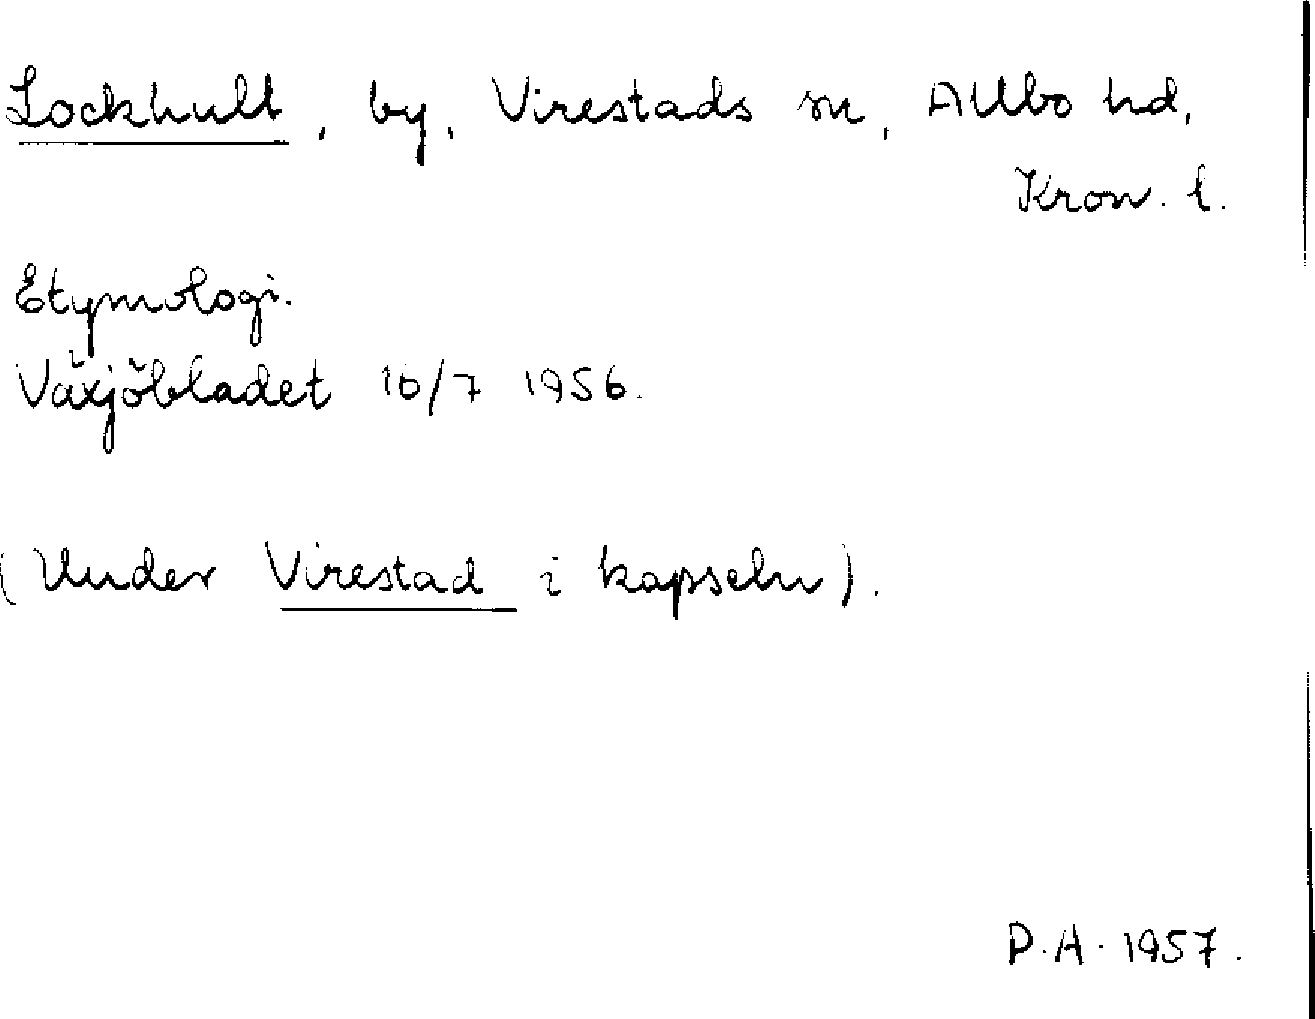 Lockhult, by, Virestads sn, Allbo hd,
Kron. l.
Etymologi.
Växjöbladet 16/7 1956.
(Under Virestad i kapseln).
P.A. 1957.